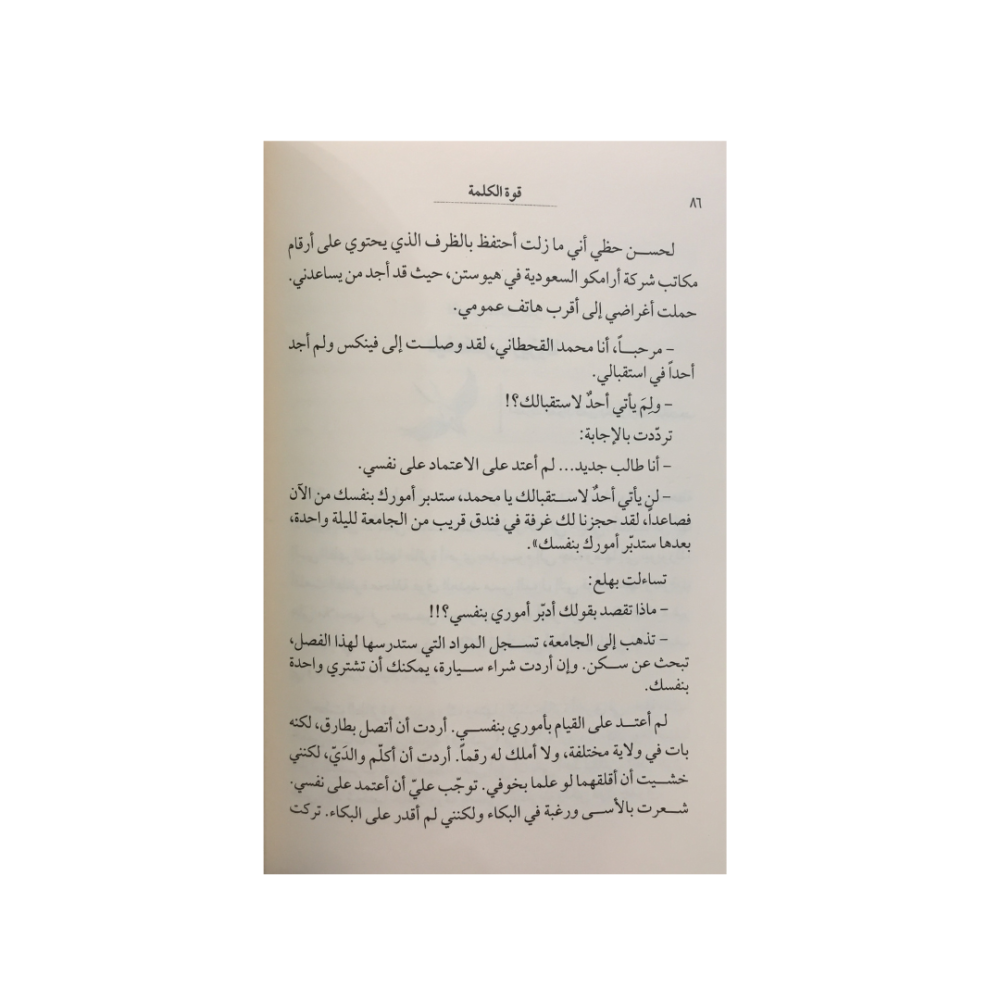 ٨٦
قوة الكلمة
لحسن حظي أني ما زلت أحتفظ بالظرف الذي يحتوي على أرقام
مكاتب شركة أرامكو السعودية في هيوستن، حيث قد أجد من يساعدني.
حملت أغراضي إلى أقرب هاتف عمومي.
– مرحباً، أنا محمد القحطاني، لقد وصلت إلى فينكس ولم أجد
أحداً في استقبالي.
– ولِمَ يأتي أحدٌ لاستقبالك؟!
تردّدت بالإجابة:
– أنا طالب جديد... لم أعتد على الاعتماد على نفسي.
– لن يأتي أحدٌ لاستقبالك يا محمد، ستدبر أمورك بنفسك من الآن
فصاعداً، لقد حجزنا لك غرفة في فندق قريب من الجامعة لليلة واحدة،
بعدها ستدبّر أمورك بنفسك».
تساءلت بهلع:
– ماذا تقصد بقولك أدبّر أموري بنفسي؟!!
– تذهب إلى الجامعة، تسجل المواد التي ستدرسها لهذا الفصل،
تبحث عن سكن. وإن أردت شراء سيارة، يمكنك أن تشتري واحدة
بنفسك.
لم أعتد على القيام بأموري بنفسي. أردت أن أتصل بطارق، لكنه
بات في ولاية مختلفة، ولا أملك له رقماً. أردت أن أكلّم والدَيّ، لكنني
خشيت أن أقلقهما لو علما بخوفي. توجّب عليّ أن أعتمد على نفسي.
شعرت بالأسى ورغبة في البكاء ولكنني لم أقدر على البكاء. تركت